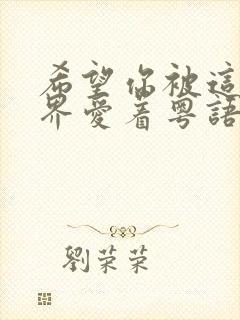 希望你被這
界愛着粵語
劉荣荣